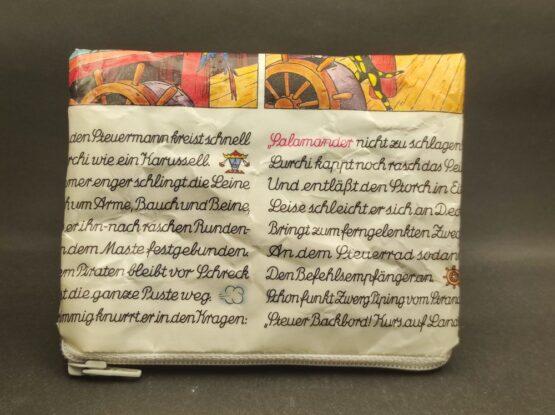 den Steuermann kreist schnell
rchi wie ein Karussell.
mer enger schlingt die Leine
h um Arme, Bauch und Beine,
er ihn nach raschen Runden-
n dem Maste festgebunden.
em Piraten bleibt vor Schreck
st die ganze Puste weg.
mmig knurrt er in den Kragen:
„Salamander nicht zu schlagen
Lurchi kappt noch rasch das Sei
Und entläßt den Storch in Ei
Leise schleicht er sich an Dec
Bringt zum ferngelenkten Zwec
An dem Steuerrad sodan
Den Befehlsempfänger an.
Schon funkt Zwerg Piping vom Stran
„Steuer Backbord! Kurs auf Land